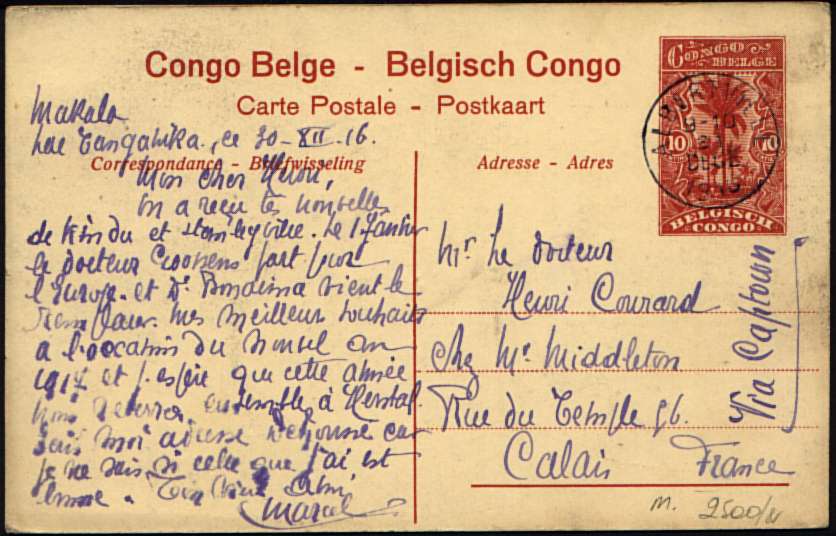 Congo Belge - Belgisch Congo
Carte Postale - Postkaart
Correspondance - Briefwisseling
Adresse - Adres
CONGO BELGE
10 10
BELGISCH CONGO
ALBERTVILLE
Makala
Lac Tanganika, ce 30-XII-16.
Mon cher Henri,
On a reçu tes nouvelles
de Kindu et Stanleyville. Le 1 Janvier
le docteur part pour
l'Europe et Dr vient le
remplacer. Mes meilleur souhaits
à l'occasion du nouvel an
1917 et j'espère que cette année
nous ensemble à Herstal.
moi adresse car
je ne sais si celle que j'ai est
bonne. Ton Ami,
Marcel
Mr Le docteur
Henri Conrard
chez Mr Middleton
Rue du Temple 56.
Calais France
Via Captown
M. 2500/u